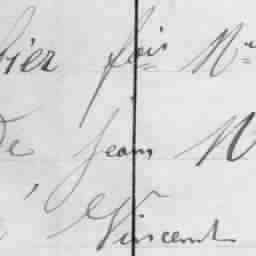 bier fois M
De jean M
Vincent